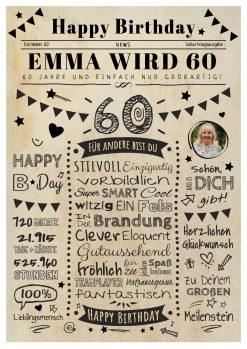 Happy Birthday
Extrablatt 60
NEWS
Geburtstagsausgabe
EMMA WIRD 60
60 JAHRE UND EINFACH NUR GROẞARTIG!
60
FÜR ANDERE BIST DU
STILVOLL Einzigartig
vorbildlich
Super SMART Cool
witzig EIN Fels
In der Brandung
Clever Eloquent
Gutaussehend
fröhlich für jeden Spaß zu haben
TEAMPLAYER Vertrauensperson
fantastisch
HAPPY BIRTHDAY
HAPPY
B-Day
720 MONATE
21.915
TAGE + NÄCHTE
525.960
STUNDEN
100%
Lieblingsmensch
Schön,
dass es DICH
gibt!
Herzlichen
Glückwunsch
zu Deinem
GROẞEN
Meilenstein